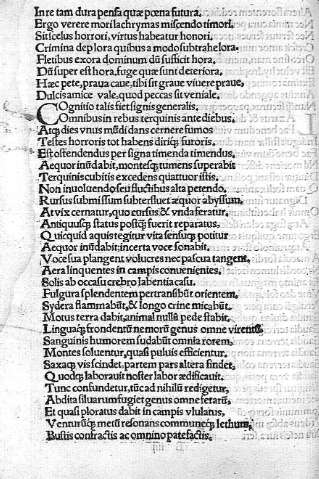 In re tam dura pensa quæ pœna futura.
Ergo verere mori lachrymas miscendo timori.
Sit scelus horrori, virtus habeatur honori.
Crimina deplora quibus a modo subtrahe lora.
Fletibus exora dominum dū sufficit hora.
Dū super est hora, fuge quæ sunt deteriora.
Hæc pete, praua caue, tibi sit graue viuere praue,
Dulcis amice vale, quod peccas sit veniale.
COgnitio talis fiet signis generalis,
Omnibus in rebus terquinis ante diebus.
Atq; dies vnus mūdi dans cernere fumos
Testes horroris tot habens diricq; furoris.
Est ostendendus per signa timenda timendus,
Aequor inūdabit, montesq; tumens superabit
Terquinis cubitis excedens quattuor istis.
Non inuoluendo sei fluctibus alta petendo.
Rursus submissum subterfluet æquor abyssum,
At vix cernatur, quo cursus & vnda feratur.
Antiquusq; status postq̃ fuerit reparatus.
Quicquid aquis tegitur vita sensuq; potitur
Aequor inūdabit, incerta voce sonabit.
Voce sua plangent volucres nec pascua tangent,
Aera linquentes in campis conuenientes.
Solis ab occasu crebro labentia casu.
Fulgura splendentem pertransibūt orientem.
Sydera flammabūt, & longo crine micabūt.
Motus terra dabit, animal nullū pede stabit.
Linguæq; frondentū nemorū genus omne virentū
Sanguinis humorem sudabūt omnia rorem.
Montes soluentur, quasi puluis efficientur.
Saxaq; vis scindet, partem pars altera findet.
Quodq; laborauit noster labor ædificauit.
Tunc confundetur, tūc ad nihilū redigetur,
Abdita siluarum fugiet genus omne ferarū.
Et quasi ploratus dabit in campis vlulatus,
Venturūq; metū resonans communeq; lethum,
Bustis contractis ac omnino patefactis.